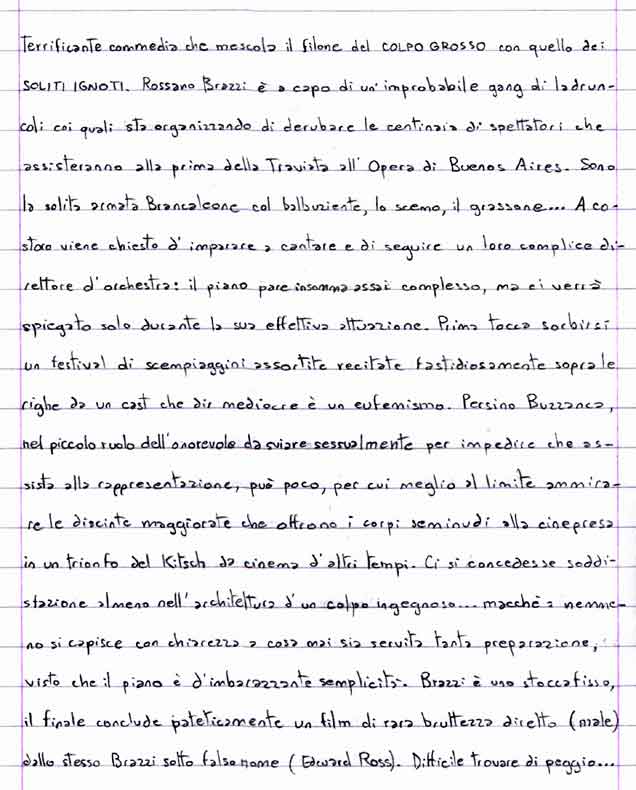 Terrificante commedia che mescola il filone del COLPO GROSSO con quello dei
SOLITI IGNOTI. Rossano Brazzi è a capo di un'improbabile gang di ladrun-
coli coi quali sta organizzando di derubare le centinaia di spettatori che
assisteranno alla prima della Traviata all'Opera di Buenos Aires. Sono
la solita armata Brancaleone col balbuziente, lo scemo, il grassone... A co-
storo viene chiesto d'imparare a cantare e di seguire un loro complice di-
rettore d'orchestra: il piano pare insomma assai complesso, ma ci verrà
spiegato solo durante la sua effettiva attuazione. Prima tocca sorbirsi
un festival di scempiaggini assortite recitate fastidiosamente sopra le
righe da un cast che dir mediocre è un eufemismo. Persino Buzzanca,
nel piccolo ruolo dell'onorevole da sviare sessualmente per impedire che as-
sista alla rappresentazione, può poco, per cui meglio al limite ammira-
re le discinte maggiorate che offrono i corpi seminudi alla cinepresa
in un trionfo del Kitsch da cinema d'altri tempi. Ci si concedesse soddi-
sfazione almeno nell'architettura d'un colpo ingegnoso... macchè: nemme-
no si capisce con chiarezza a cosa mai sia servita tanta preparazione,
visto che il piano è d'imbarazzante semplicità. Brazzi è uno stoccafisso,
il finale conclude pateticamente un film di rara bruttezza diretto (male)
dallo stesso Brazzi sotto falso nome (Edward Ross). Difficile trovare di peggio...